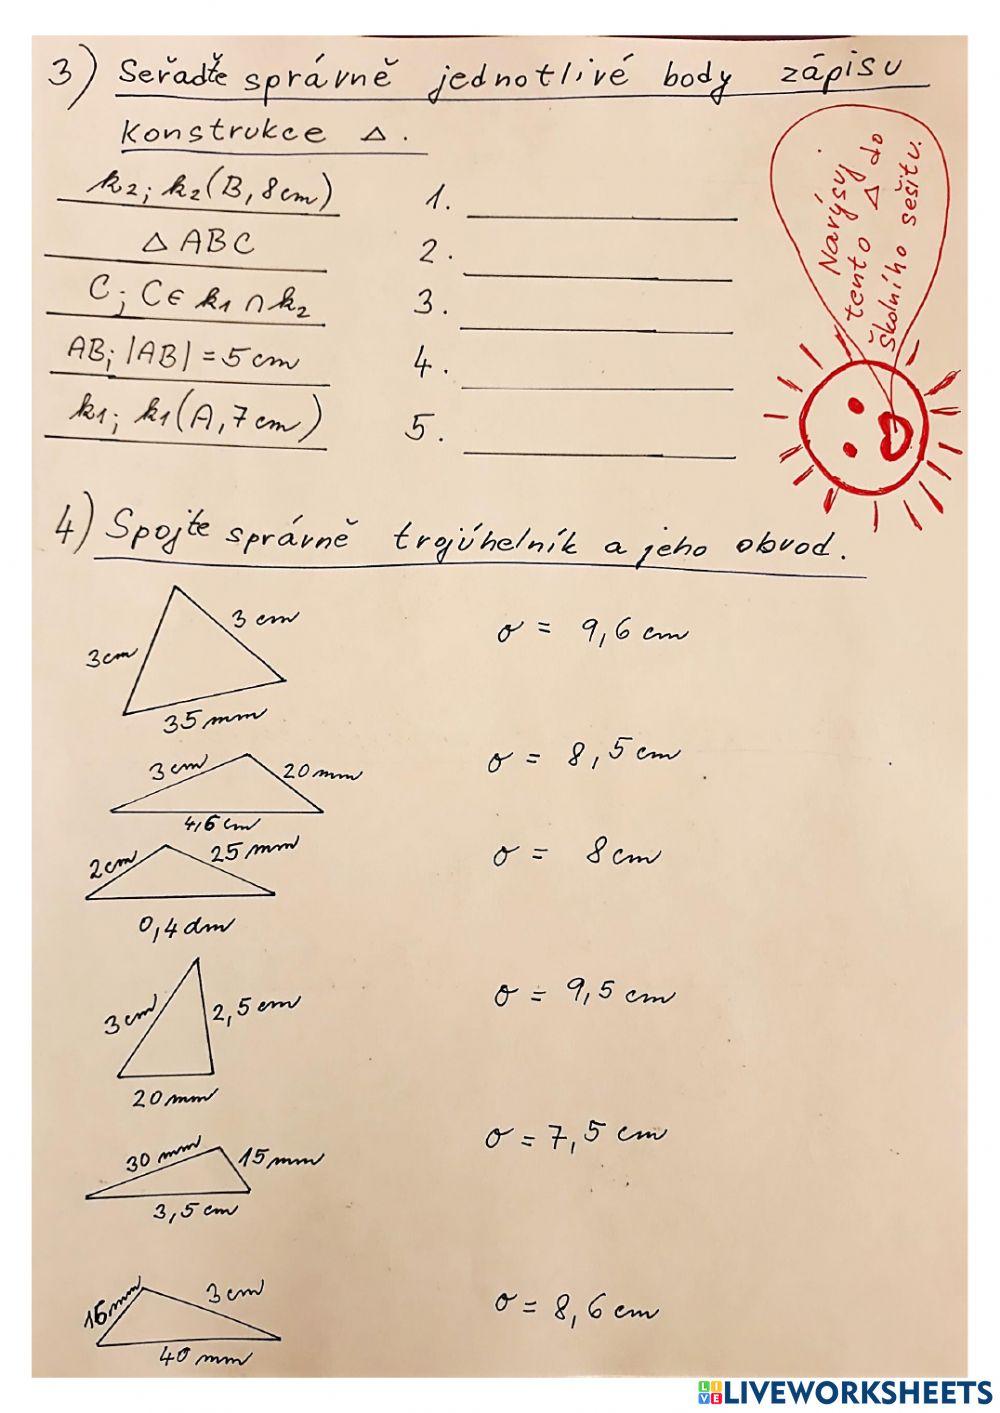 3) Seřaďte správně jednotlivé body zápisu
konstrukce △.
k₂; k₂(B, 8cm)
△ ABC
C; C∈ k₁ ∩ k₂
AB; |AB| = 5 cm
k₁; k₁(A, 7 cm)
1.
2.
3.
4.
5.
Narýsuj
tento △ do
školního sešitu.
4) Spojte správně trojúhelník a jeho obvod.
3 cm
3 cm
35 mm
o = 9,6 cm
3 cm
20 mm
4,6 cm
o = 8,5 cm
2 cm
25 mm
0,4 dm
o = 8 cm
3 cm
2,5 cm
20 mm
o = 9,5 cm
30 mm
15 mm
3,5 cm
o = 7,5 cm
16 mm
3 cm
40 mm
o = 8,6 cm
LIVEWORKSHEETS